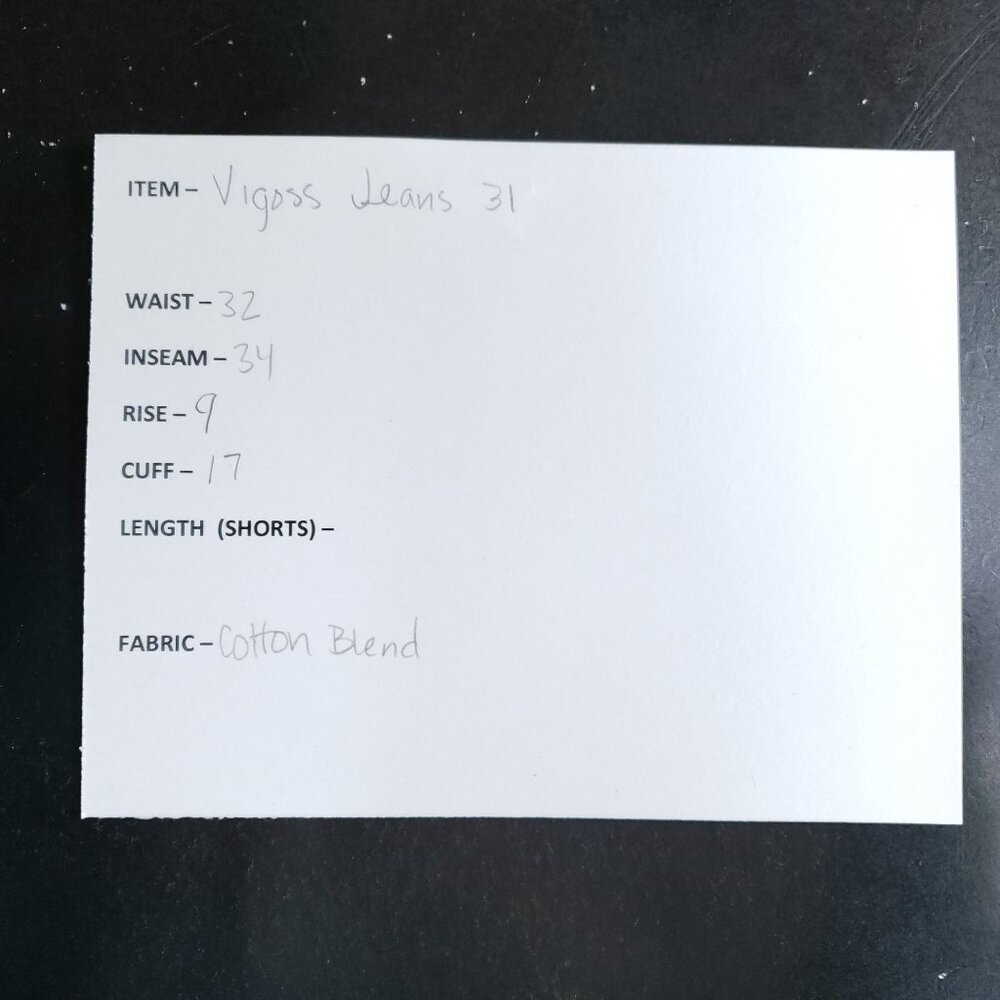 ITEM – Vigoss Jeans 31
WAIST – 32
INSEAM – 34
RISE – 9
CUFF – 17
LENGTH (SHORTS) –
FABRIC – Cotton Blend